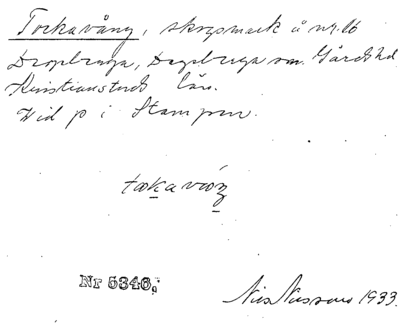 Tockavång, skogsmark å nr. 16
Degeberga, Degeberga sn. Gärds hd
Kristianstads län.
Vid p i Stampen.
tɔkavɔŋ
Nr 5346;
Nils Nilsson 1933.